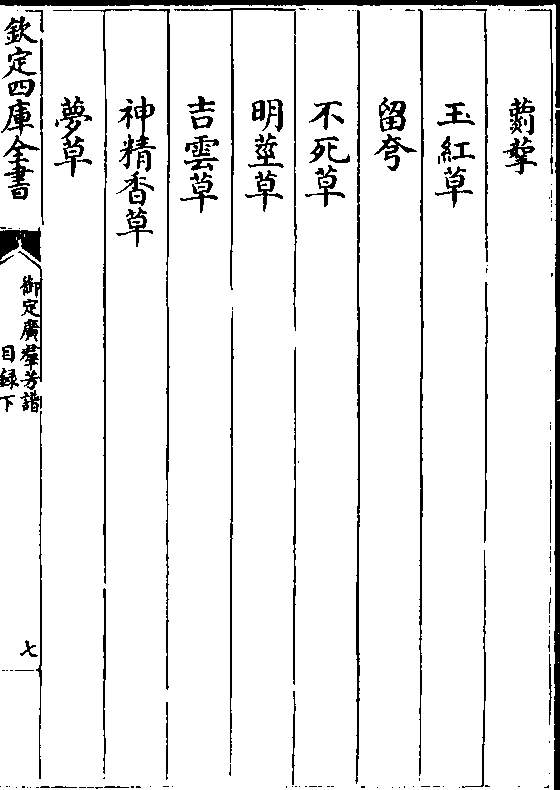 玉紅草
留夸
不死草
明莖草
吉雲草
神精香草
夢草
欽定四庫全書
御定廣羣芳譜
目録下
七